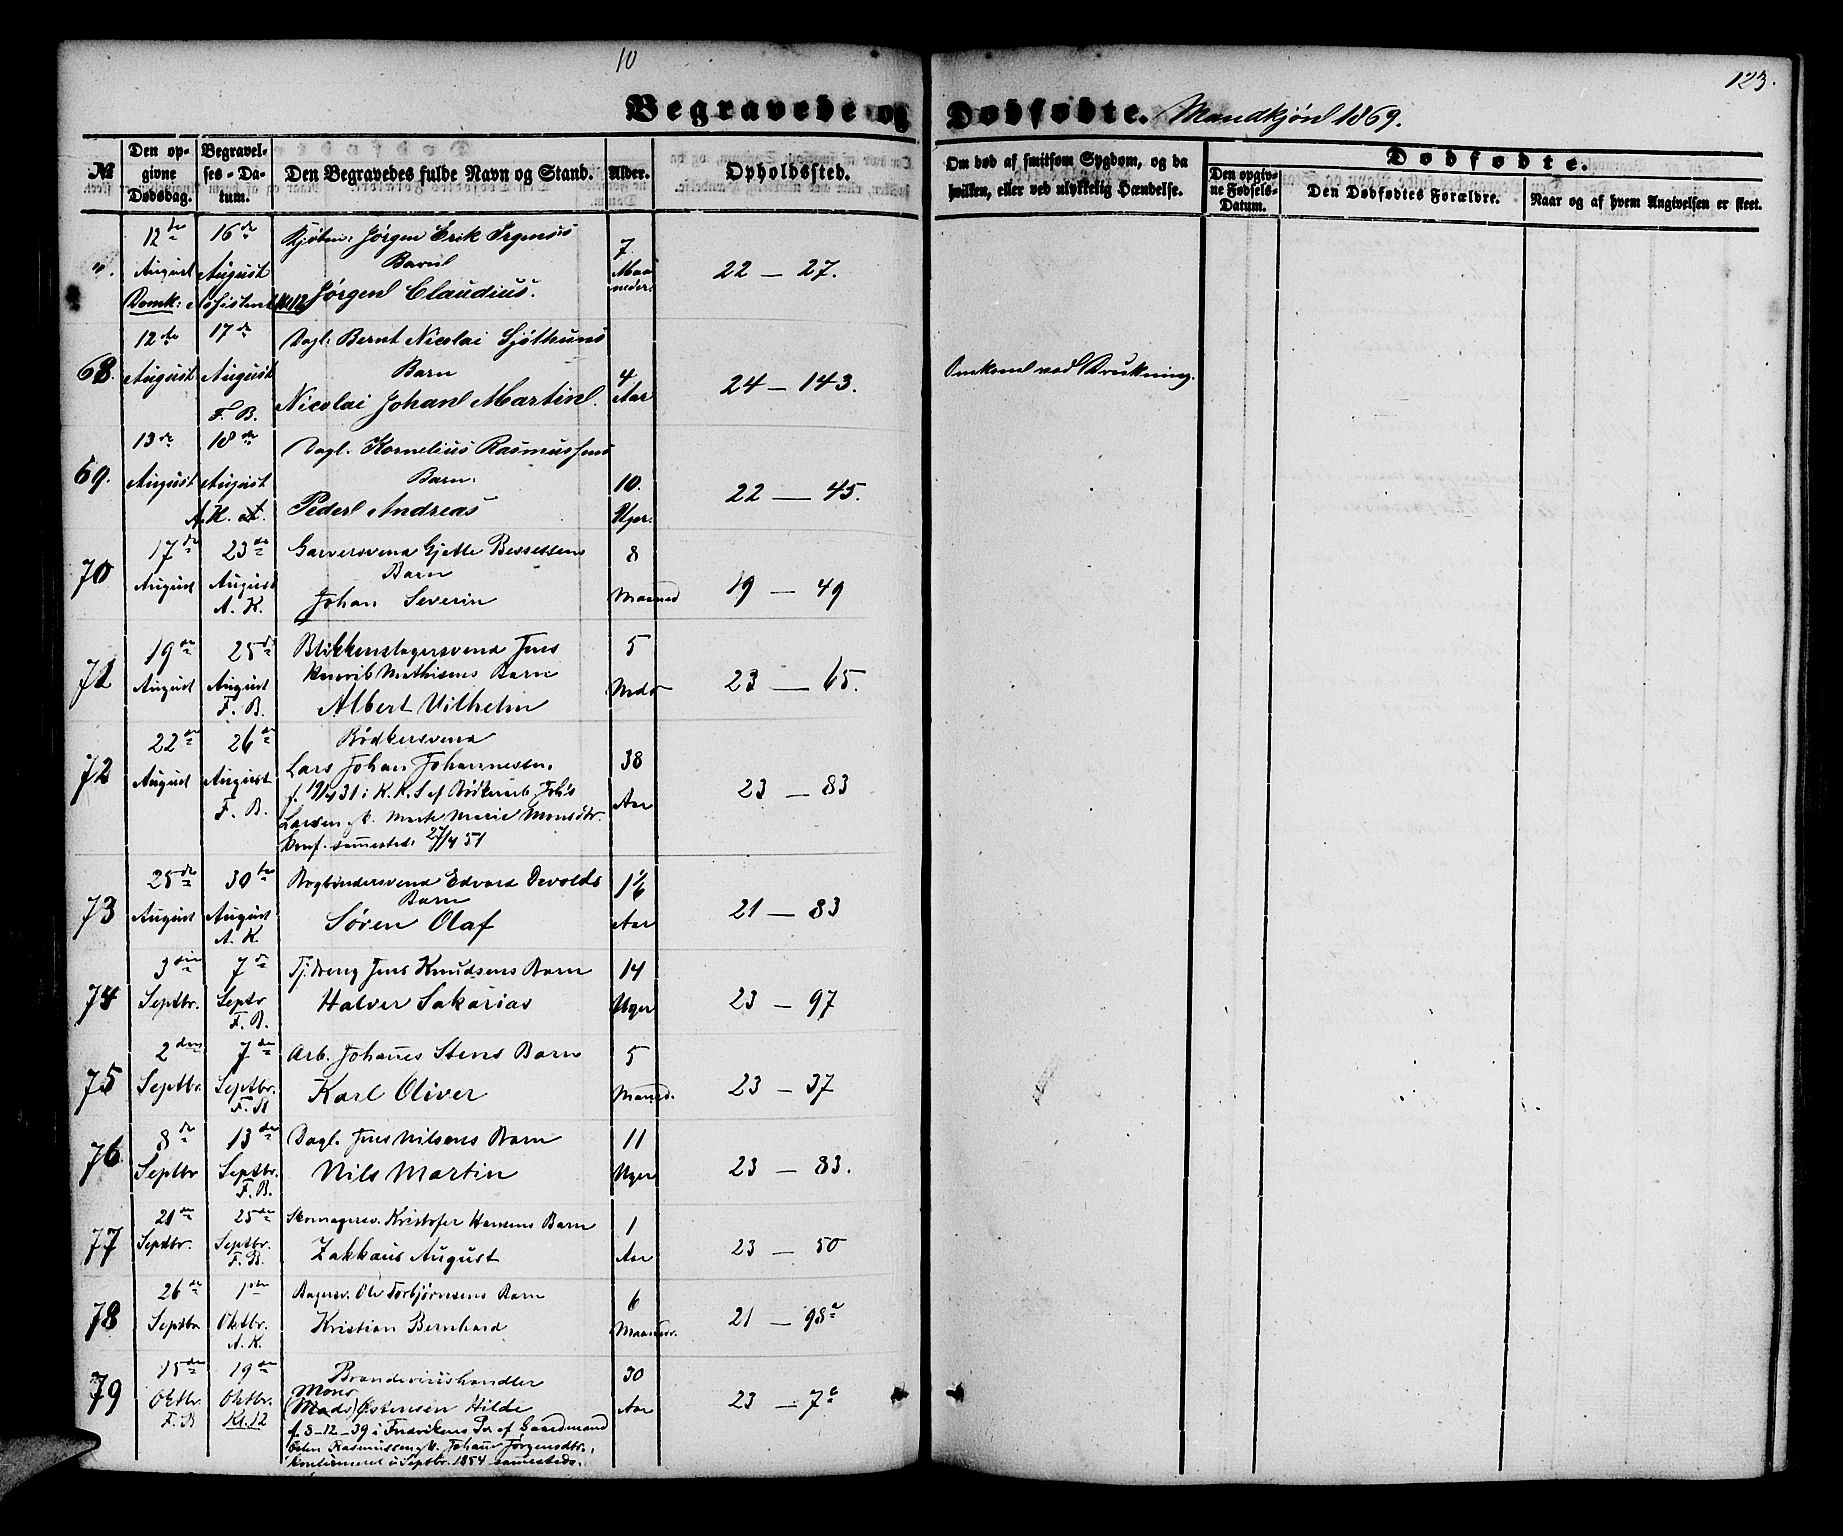 10
123.
Begravede og Dødfødte. Mandkjøn 1869.
№
Den opgivne Dødsdag.
Begravelses-Datum.
Den Begravedes fulde Navn og Stand.
Alder.
Opholdssted.
Om død af smitsom Sygdom, og da hvilken, eller ved ulykkelig Hændelse.
Dødfødte.
Den opgivne Fødsels-Datum.
Den Dødfødtes Forældre.
Naar og af hvem Angivelsen er skeet.
„. 12te August 16de August Kjøbm: Jørgen Erik Irgens's 7
Barn Maaneder. 22 — 27.
Domk: Assistent Kl 12 Jørgen Claudius.
12te 17de Dagl: Bernt Nicolai Sjøthuns
68. August August Barn 4 Aar 24 — 143. Omkom ved Drukning.
F. B. Nicolai Johan Martin.
13de 18de Dagl. Kornelius Rasmussens
69. August August Barn. 10. 22 — 45.
A. K. Peder Andreas Uger.
17de 23de Garversvend Gjette Bessesens 8
70 August August Barn 19 — 49
A. K. Johan Severin Maaned
19de 25de Blikkenslagersvend Jens 5
71 August August Henrik Mathisens Barn Mdr 23 — 65.
F. B. Albert Vilhelm
22de 26de Bødkersvend
72 August August Lars Johan Johannessen. 38 Aar 23 — 83
F. B. f. 19/4 31 i K. K. S af Bødkerarb. Johs
Larsen gk. Marte Marie Monsdtr.
Konf. sammesteds 27/4 51
25de 30te Bogbindersvend Edvard Devolds 1 1/6
73 August August Barn Aar 21 — 83
A. K. Søren Olaf
3die 7de Tj.dreng Jens Knudsens Barn 14
74 Septbr. Septbr Halver Sakarias Uger 23 — 97
F. B.
2den 7de Arb. Johannes Stens Barn 5
75 Septbr. Septbr. Karl Oliver Maaned. 23 — 37
F. B
8de 13de Dagl. Jens Nilsens Barn 11
76. Septbr Septbr. Nils Martin Uger 23 — 83.
F. B.
21de 25de Skomagersv. Kristofer Hansens Barn 1
77 Septbr. Septbr. Zakkæus August Aar 23 — 50
F. B.
26de 1ste Bagersv. Ole Torbjørnsens Barn 6
78 Septbr Oktbr. Kristian Bernhard Maaneder. 21 — 98a
A. K.
15de 19de Brændevinshandler 30
79 Oktbr. Oktbr. Mons
F. B Kl. 12 (Mads) Østensen Hilde Aar 23 — 7c
f. 8-12-39 i Fredrikens Pr. af Gaardmand
Østen Rasmussen gk. Johanne Jørgensdtr.,
konfirmeret i Septbr. 1854 sammesteds.